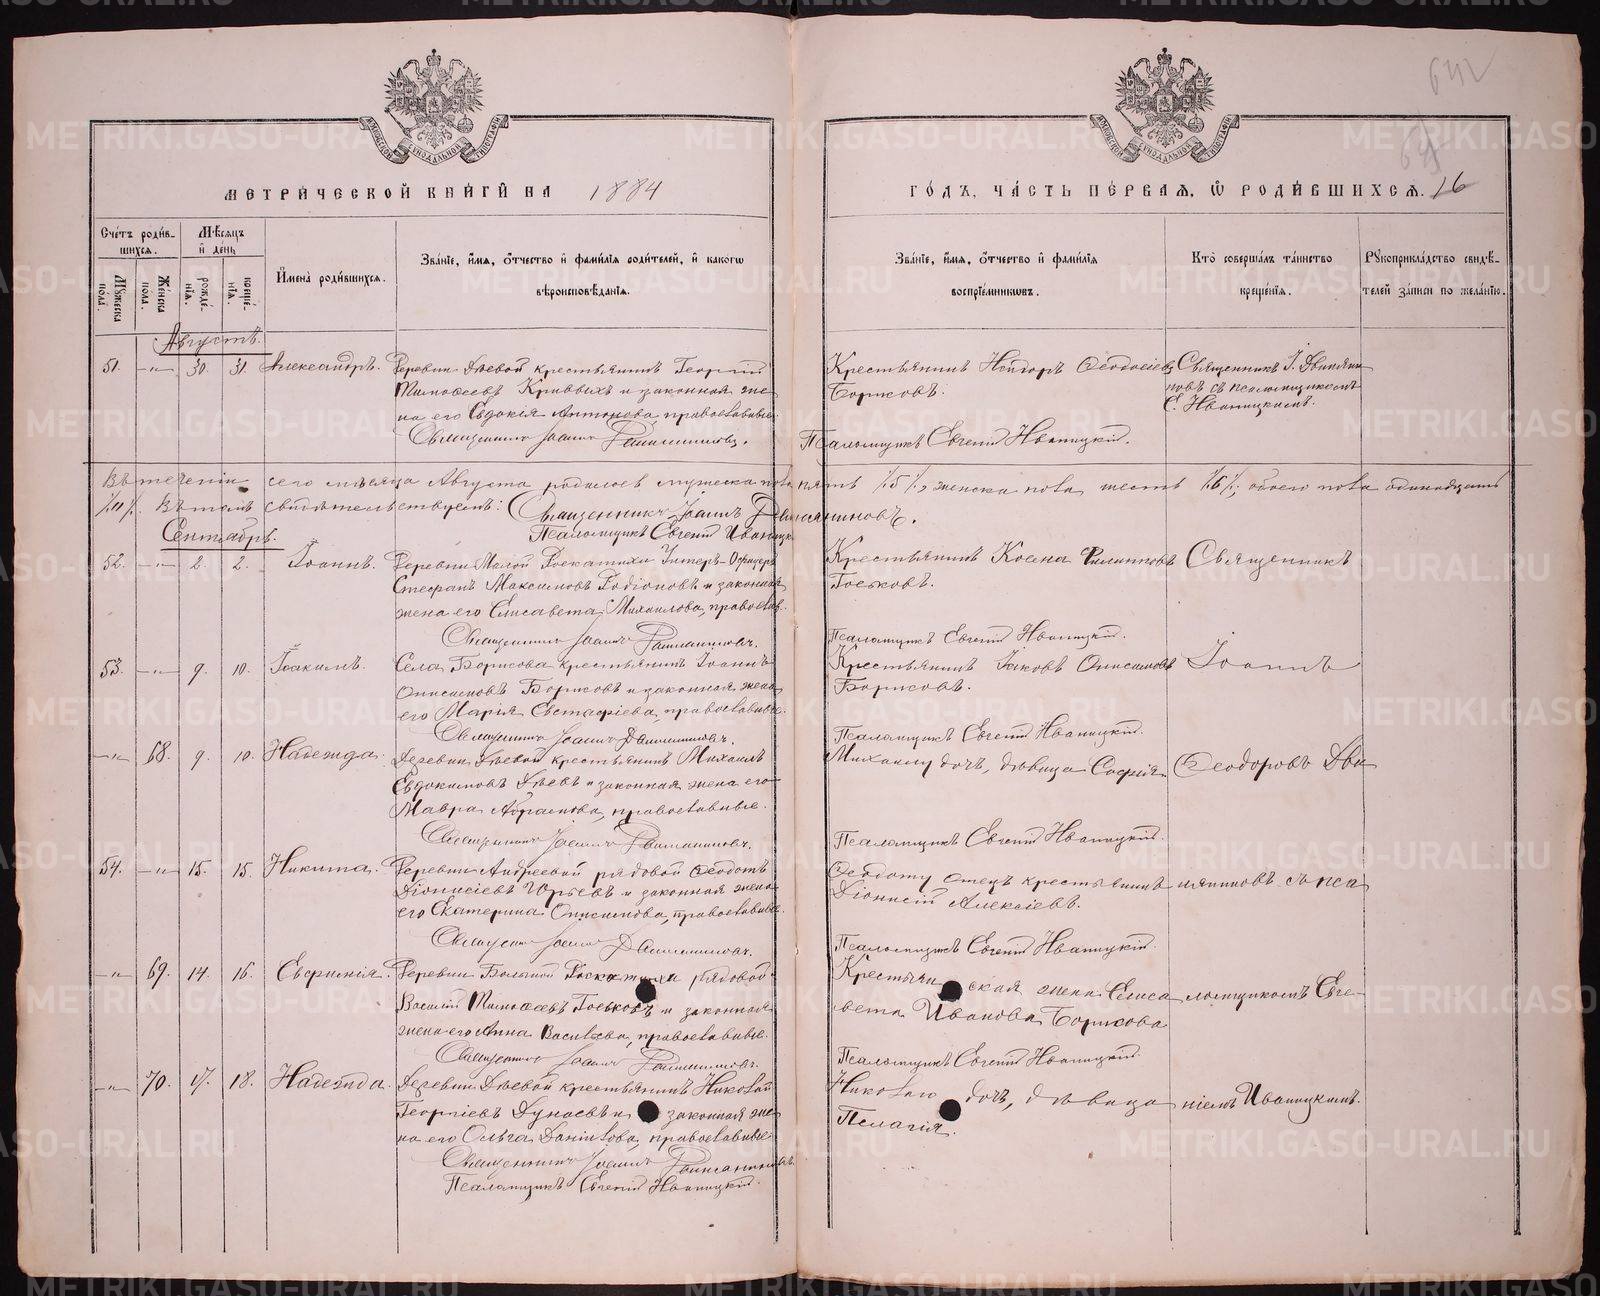 МЕТРИЧЕСКОЙ КНИГИ НА 1884
ГОДЪ, ЧАСТЬ ПЕРВАЯ, Ѿ РОДИВШИХСЯ. 16
642
Счетъ родив-
шихся.
Мѣсяцъ
и день
Имена родившихся.
Званіе, имя, отчество и фамилія родителей, и какогѡ
вѣроисповѣданія.
Мужеска
пола.
Женска
пола.
рожде-
нія.
креще-
нія.
Званіе, имя, отчество и фамилія
воспріемниковъ.
Кто совершалъ таинство
крещенія.
Рукоприкладство свидѣ-
телей записи по желанію.
Августъ.
51. -"- 30. 31. Александръ. Деревни Дѣевой крестьянинъ Георгій
Тимоѳеевъ Кривыхъ и законная же-
на его Евдокія Антонова, православные
Священникъ Іоаннъ
Крестьянинъ Несторъ Ѳеодосіевъ
Борисовъ.
Псаломщикъ Евгеній Иваницкій.
Священникъ І.
новъ съ псаломщикомъ
Е. Иваницкимъ.
Въ теченіи сего мѣсяца Августа родилось мужеска пола пять /5/, женска пола шесть /6/, обоего пола одинадцать
/11/. Въ томъ свидѣтельствуемъ: Священникъ Іоаннъ
Псаломщикъ Евгеній Иваницкій
Сентябрь.
52. -"- 2. 2. Іоаннъ. Деревни Малой Унтеръ-Офицеръ
Стефанъ Максимовъ Родіоновъ и законная
жена его Елисавета Михаилова, православ.
Священникъ Іоаннъ
Крестьянинъ Филипповъ
Госьковъ.
Псаломщикъ Евгеній Иваницкій.
Священникъ
53. -"- 9. 10. Іоакимъ. Села Борисова крестьянинъ Іоаннъ
Онисимовъ Борисовъ и законная жена
его Марія Евстафіева, православные.
Священникъ Іоаннъ
Крестьянинъ Іаковъ Онисимовъ
Борисовъ.
Псаломщикъ Евгеній Иваницкій.
Іоаннъ
-"- 68. 9. 10. Надежда. Деревни Дѣевой крестьянинъ Михаилъ
Евдокимовъ Дѣевъ и законная жена его
Мавра Абрамова, православные.
Священникъ Іоаннъ
Михаилу дочь, дѣвица Софія
Псаломщикъ Евгеній Иваницкій.
Ѳеодоровъ
54. -"- 15. 15. Никита. Деревни Андреевой рядовой Ѳеодотъ
Діонисіевъ Юрьевъ и законная жена
его Екатерина Онисимова, православные.
Іоаннъ
Ѳеодоту отецъ крестьянинъ
Діонисій Алексіевъ.
Псаломщикъ Евгеній Иваницкій.
съ пса
-"- 69. 14. 16. Евфимія. Деревни Большой рядовой
Василій Тимоѳеевъ Госьковъ и законная
жена его Анна Василіева, православные.
Іоаннъ
Крестьянская жена Елиса
вета Иванова Борисова
Псаломщикъ Евгеній Иваницкій.
ломщикомъ Евге-
-"- 70. 17. 18. Надежда. Деревни Дѣевой крестьянинъ Николай
Георгіевъ Дунаевъ и законная же-
на его Ольга Даніилова, православные
Священникъ Іоаннъ
Псаломщикъ Евгеній Иваницкій.
Николаю дочь, дѣвица
Пелагія.
ніемъ Иваницкимъ.
METRIKI.GASO-URAL.RU